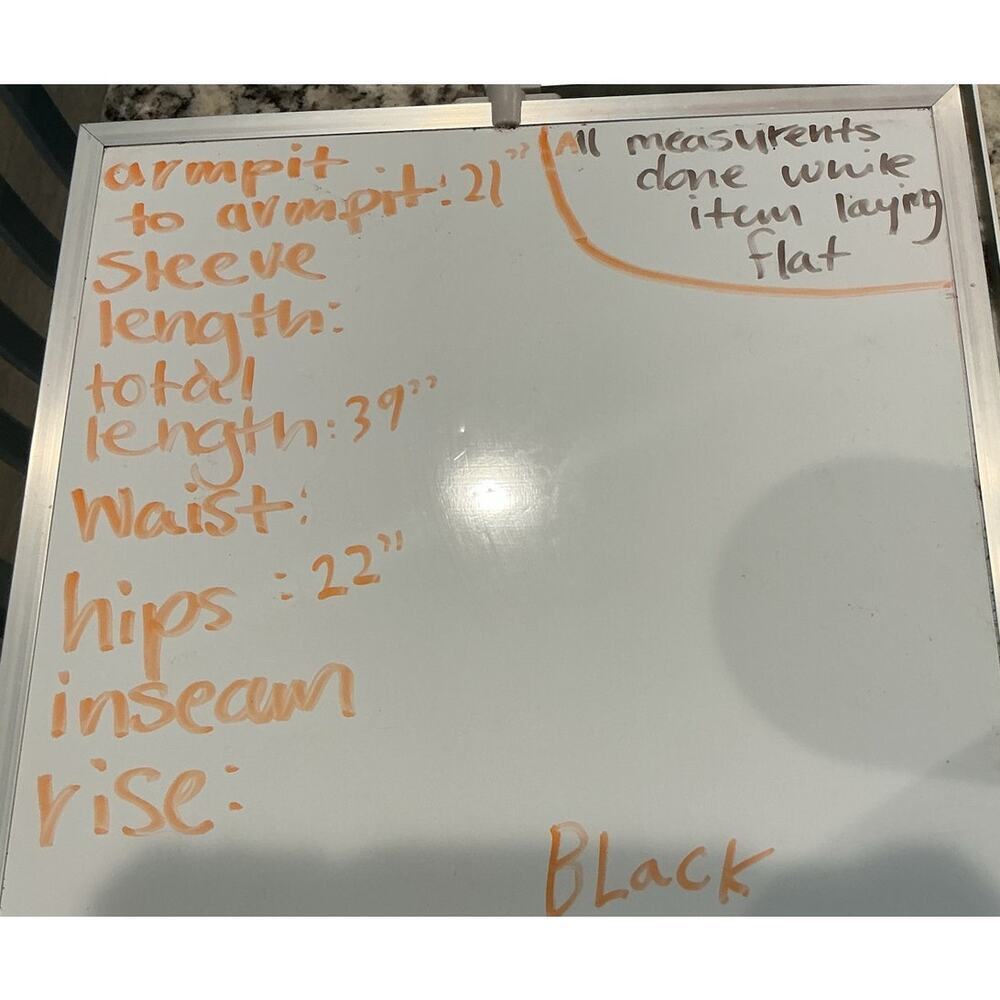 armpit
to armpit: 21"
sleeve
length:
total
length: 39"
Waist:
hips : 22"
inseam
rise:
All measurents
done while
item laying
flat
BLacK